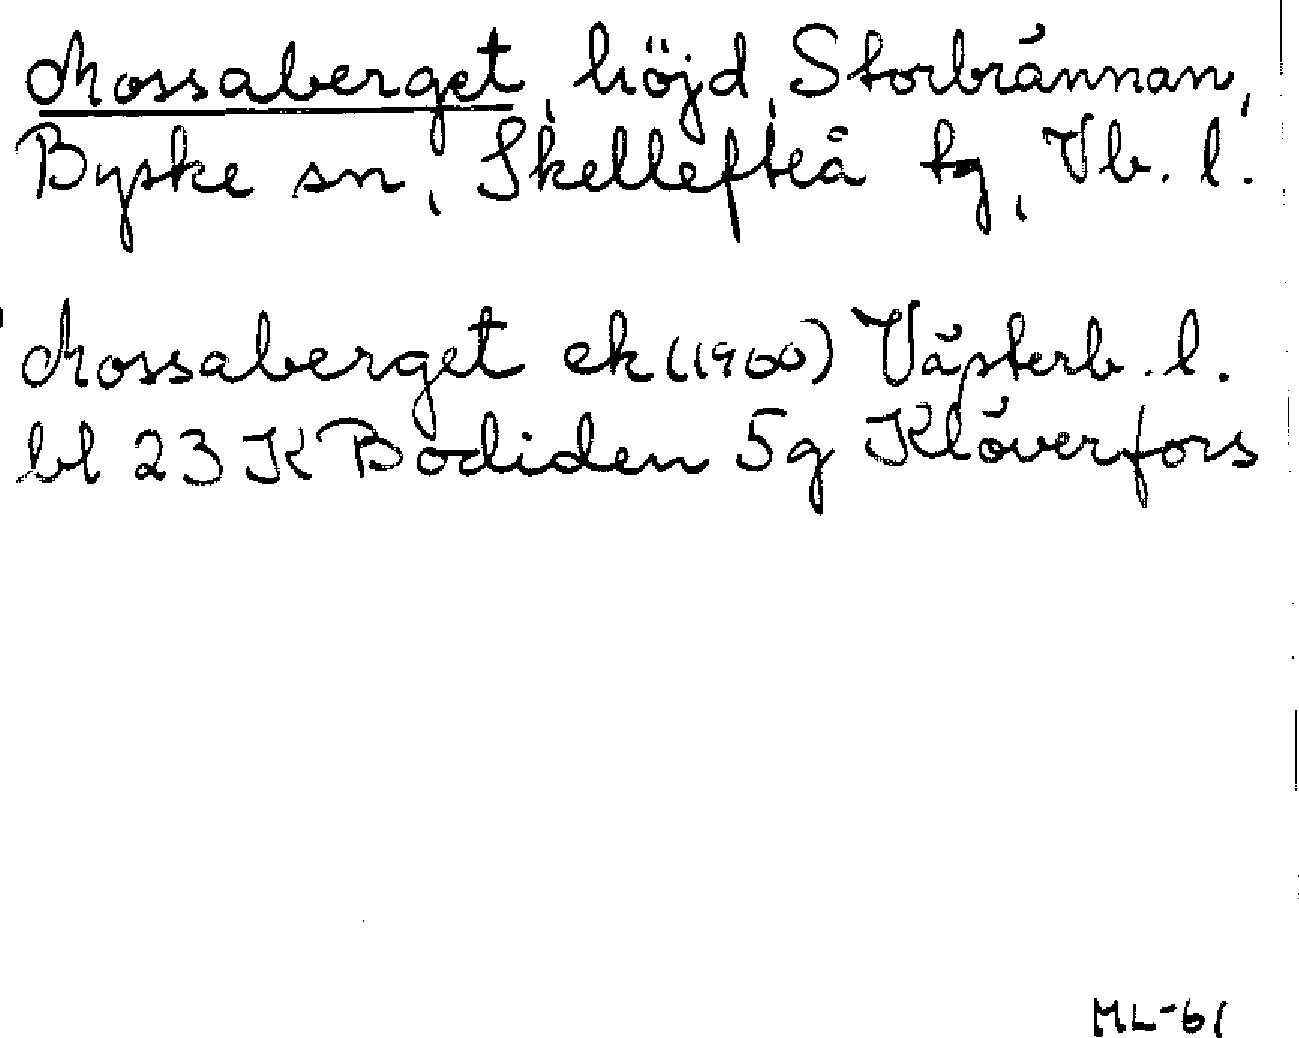 Mossaberget, höjd, Storbrännan,
Byske sn, Skellefteå tg, Vb. l.
Mossaberget ek (1960) Västerb. l.
bl 23 K Bodiden 5g Klöverfors
ML-61